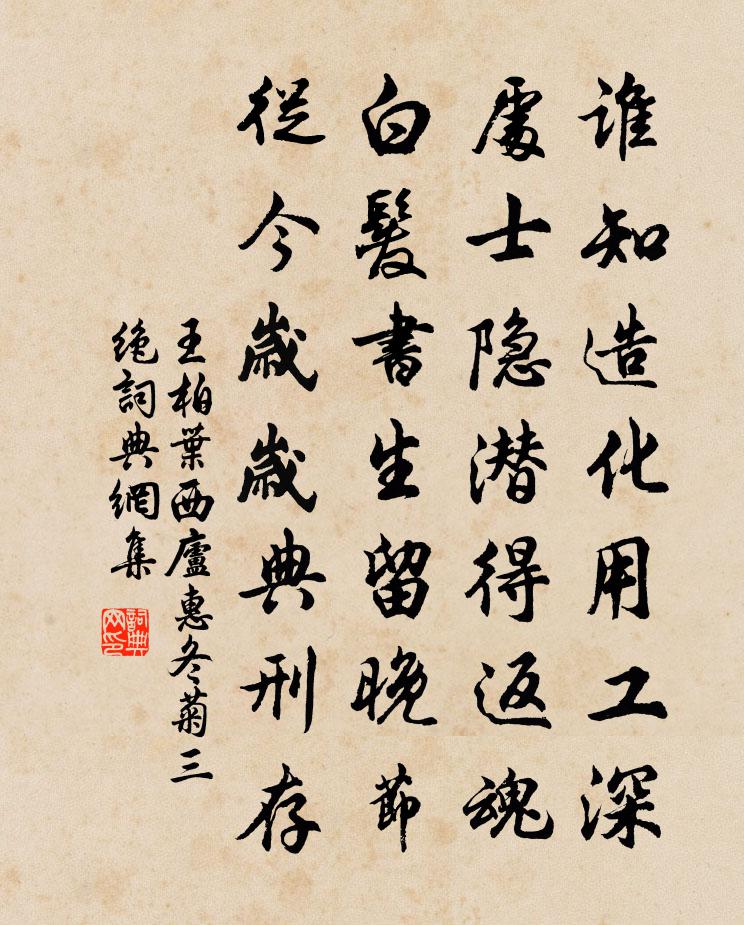 谁知造化用工深
處士隐潜得返魂
白髮書生留晚節
從今歲歲典刑存
王柏葉西廬惠冬菊三
絶詞典網集
詞典網印